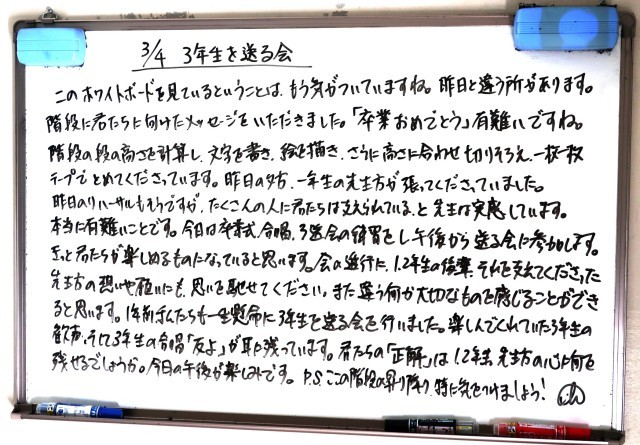 3/4 3年生を送る会
このホワイトボードを見ているということは、もう気がついていますね。昨日と違う所があります。
階段に君たちに向けたメッセージをいただきました。「卒業おめでとう」有難いですね。
階段の段の高さを計算し、文字を書き、絵を描き、さらに高さに合わせ切りそろえ、一枚一枚
テープでとめてくださっています。昨日の夕方、一年生の先生方が張ってくださっていました。
昨日のリハーサルもそうですが、たくさんの人に君たちは支えられている、と先生は実感しています。
本当に有難いことです。今日は卒業式、合唱、3送会の練習をし午後から送る会に参加します。
きっと君たちが楽しめるものになっていると思います。会の進行に、1.2年生の後輩、それを支えてくださった
先生方の想いや願いにも、思いを馳せてください。また違う何か大切なものを感じることができ
ると思います。1年前私たちも一生懸命に3年生を送る会を行いました。楽しんでくれていた3年生の
歓声、そして3年生の合唱「友よ」が耳に残っています。君たちの「正解」は1.2年生、先生方の心に何を
残せるでしょうか。今日の午後が楽しみです。P.S.この階段の昇り降り、特に気をつけましょう!